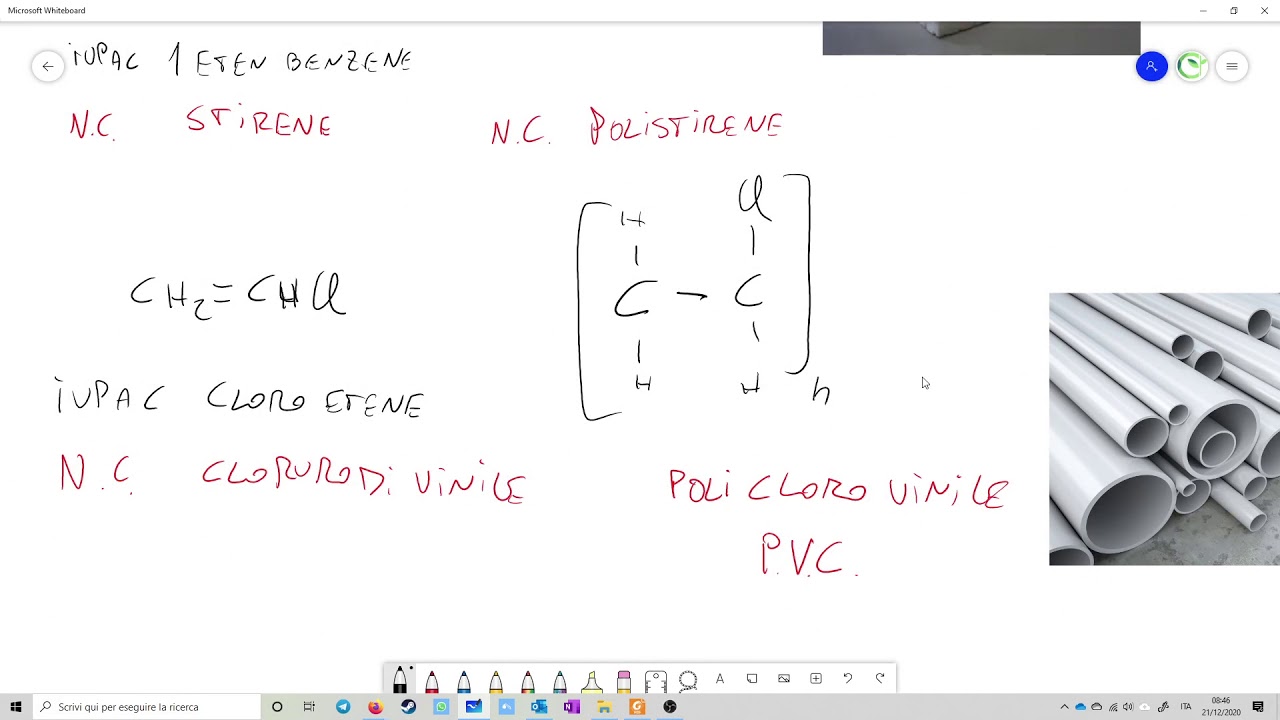 Microsoft Whiteboard
iUPAC 1 ETEN BENZENE
N.C. STiRENE
N.C. POLiSTiRENE
H Cl
CH2=CHCl
C - C
H H
n
iUPAC CLORO ETENE
N.C. CLORURO Di ViNiLE
POLi CLORO ViNiLE
P.V.C.
Scrivi qui per eseguire la ricerca
ITA
08:46
21/12/2020